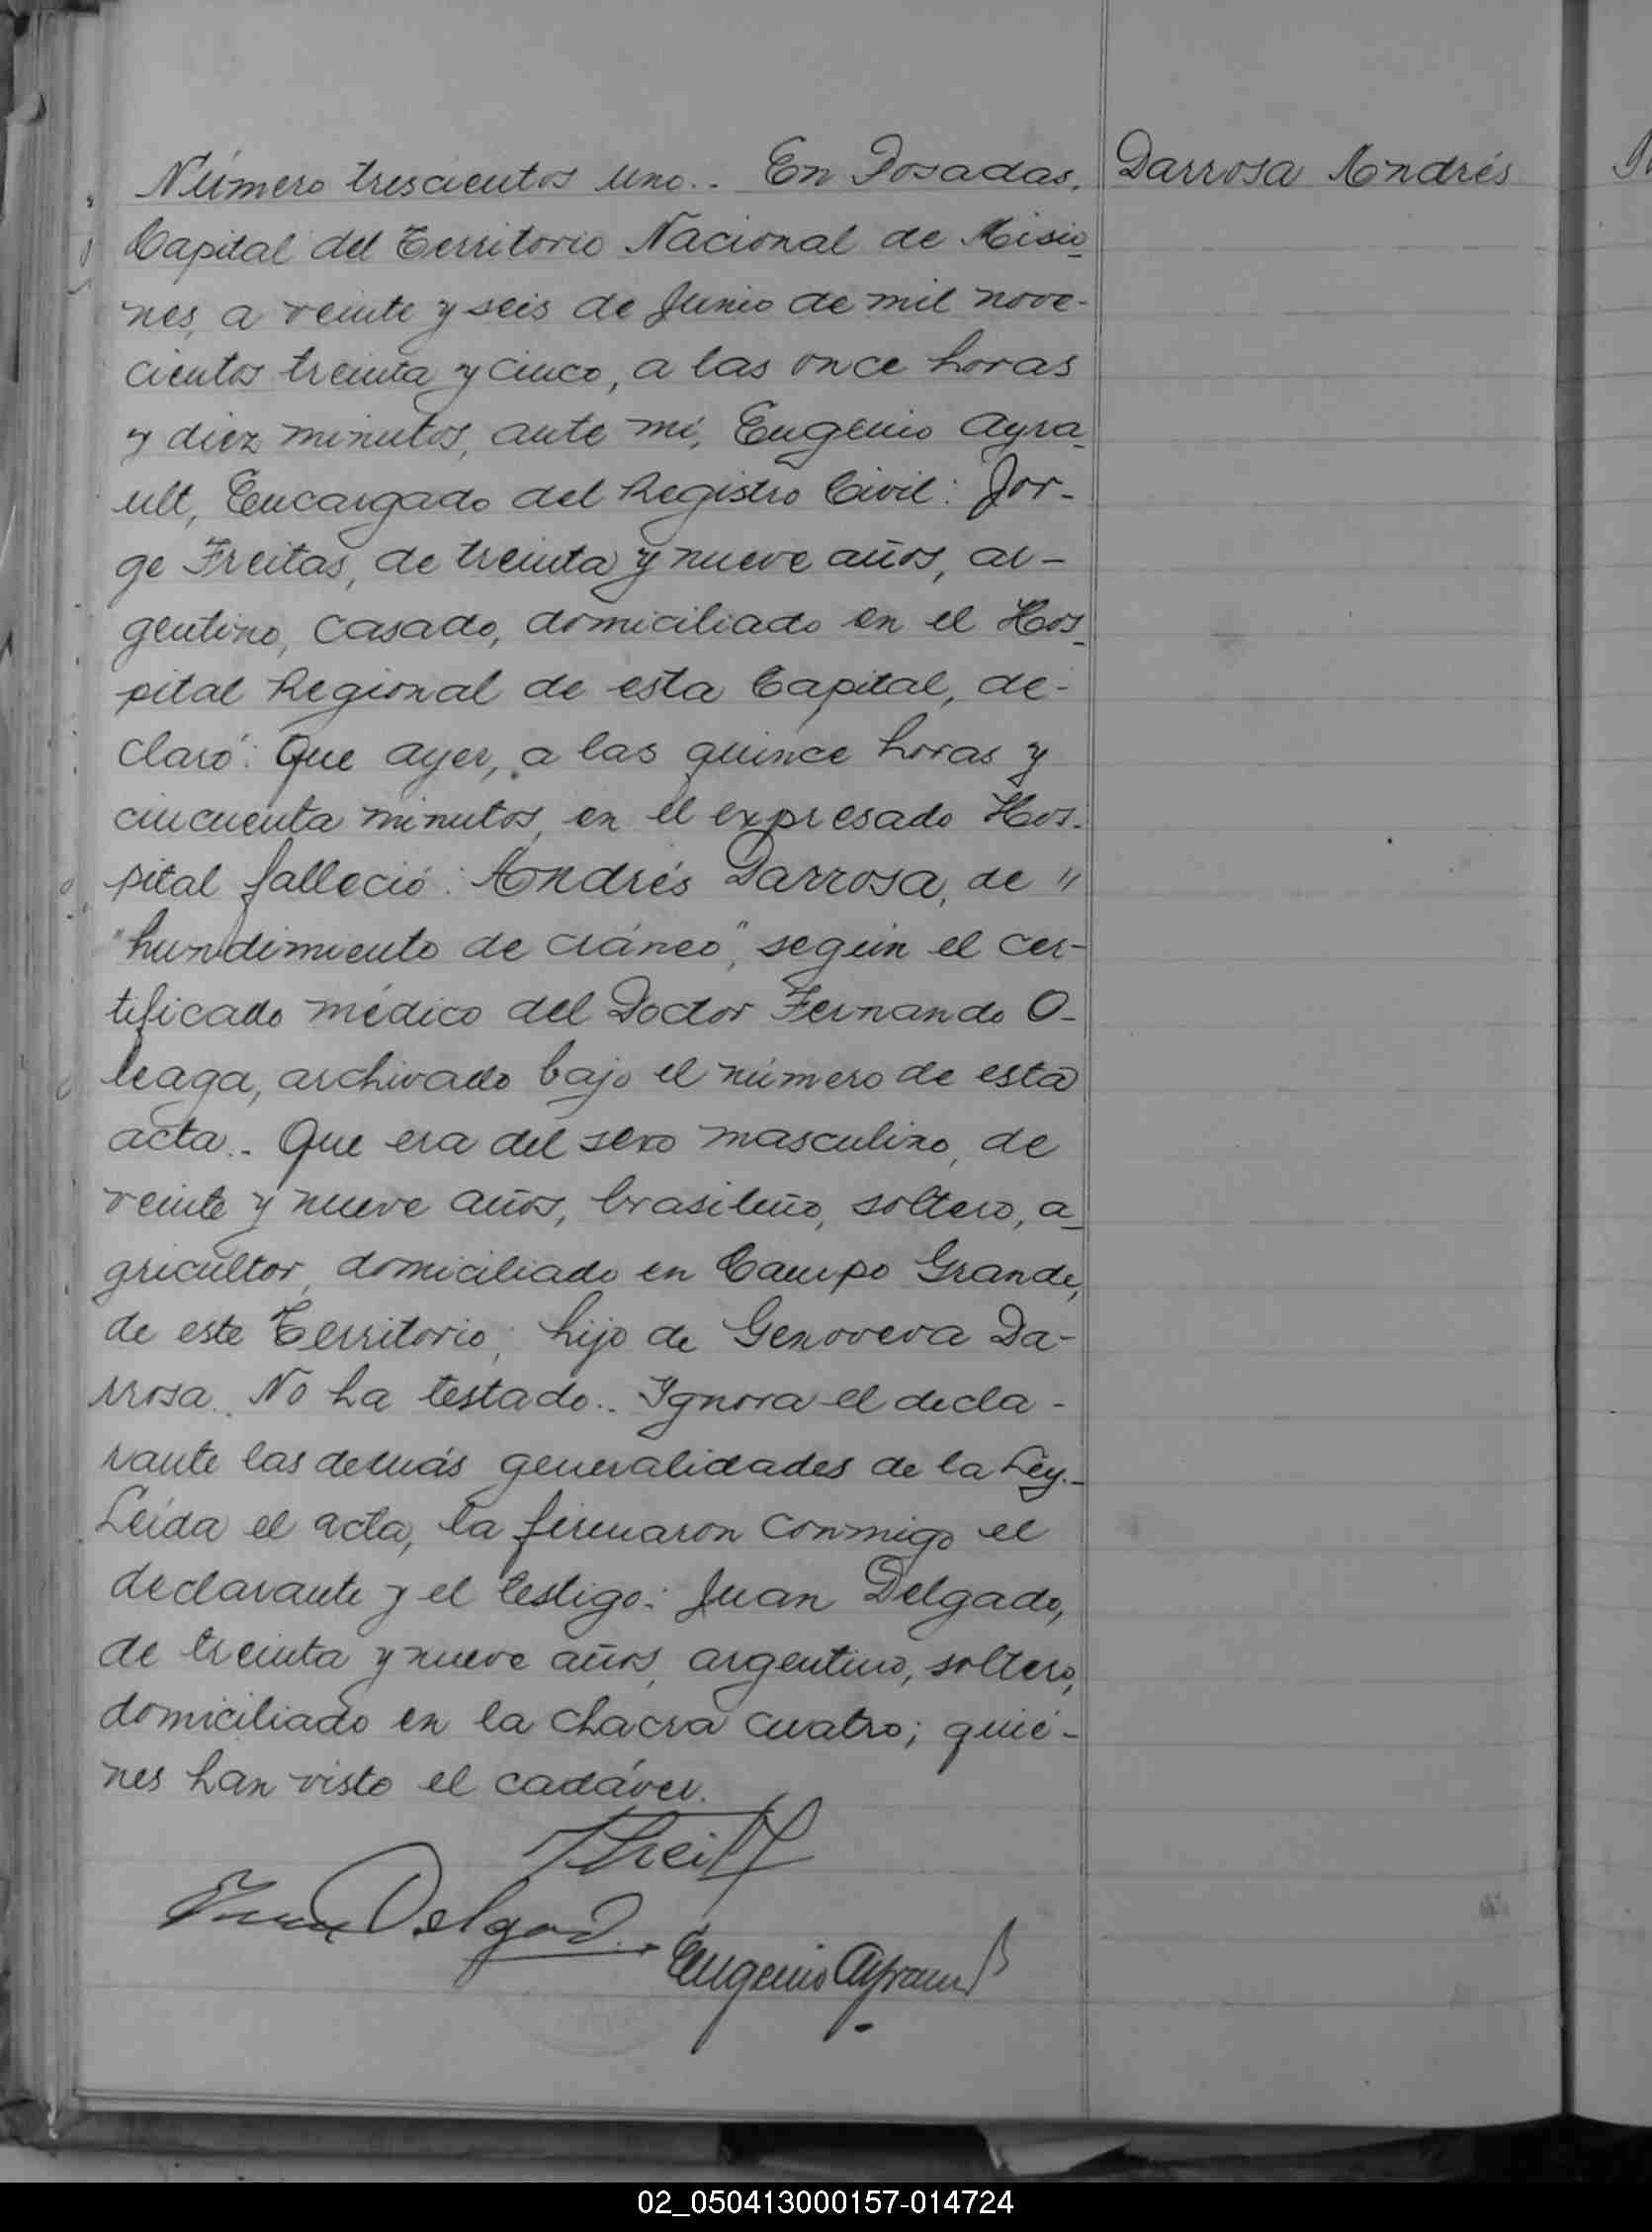 Número trescientos uno.. En Posadas,
Darrosa Andrés
Capital del Territorio Nacional de Misio-
nes, a veinte y seis de Junio de mil nove-
cientos treinta y cinco, a las once horas
y diez minutos, ante mi, Eugenio Ayra-
ult, Encargado del Registro Civil: Jor-
ge Freitas, de treinta y nueve años, ar-
gentino, casado, domiciliado en el Hos-
pital Regional de esta Capital, de-
claró: Que ayer, a las quince horas y
cincuenta minutos, en el expresado Hos-
pital falleció: Andrés Darrosa, de "
"hundimiento de cráneo", según el cer-
tificado médico del Doctor Fernando O-
leaga, archivado bajo el número de esta
acta.. Que era del sexo masculino, de
veinte y nueve años, brasileño, soltero, a-
gricultor, domiciliado en Campo Grande,
de este Territorio; hijo de Genoveva Da-
rrosa. No ha testado.. Ignora el decla-
rante las demás generalidades de la Ley.-
Leída el acta, la firmaron conmigo el
declarante y el testigo: Juan Delgado,
de treinta y nueve años, argentino, soltero,
domiciliado en la chacra cuatro; quié-
nes han visto el cadáver.
Juan Delgado
Eugenio Ayrault
02_050413000157-014724